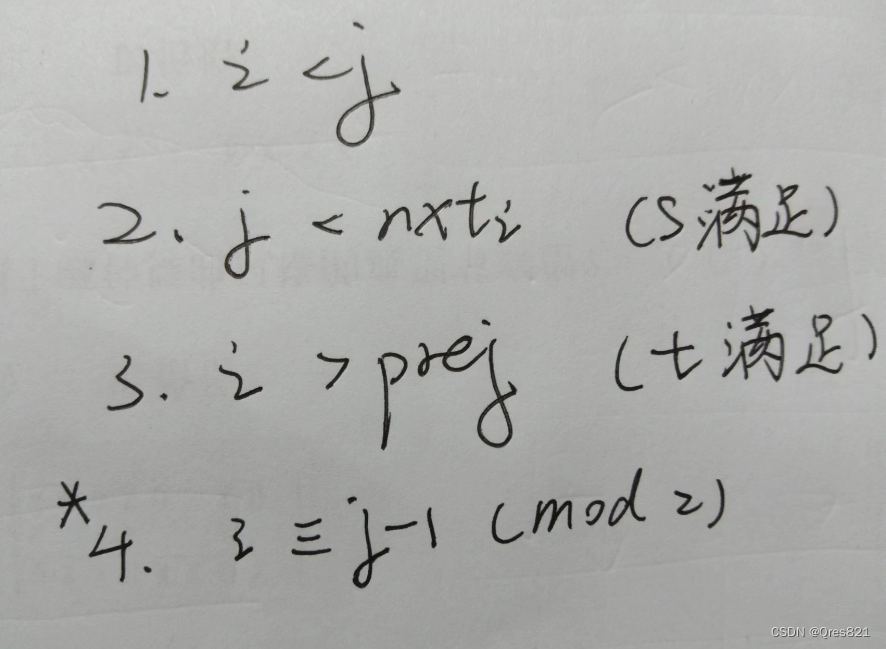 1. i < j
2. j < nxti (S满足)
3. i > prej (t满足)
*4. i ≡ j-1 (mod 2)
CSDN @Qres821